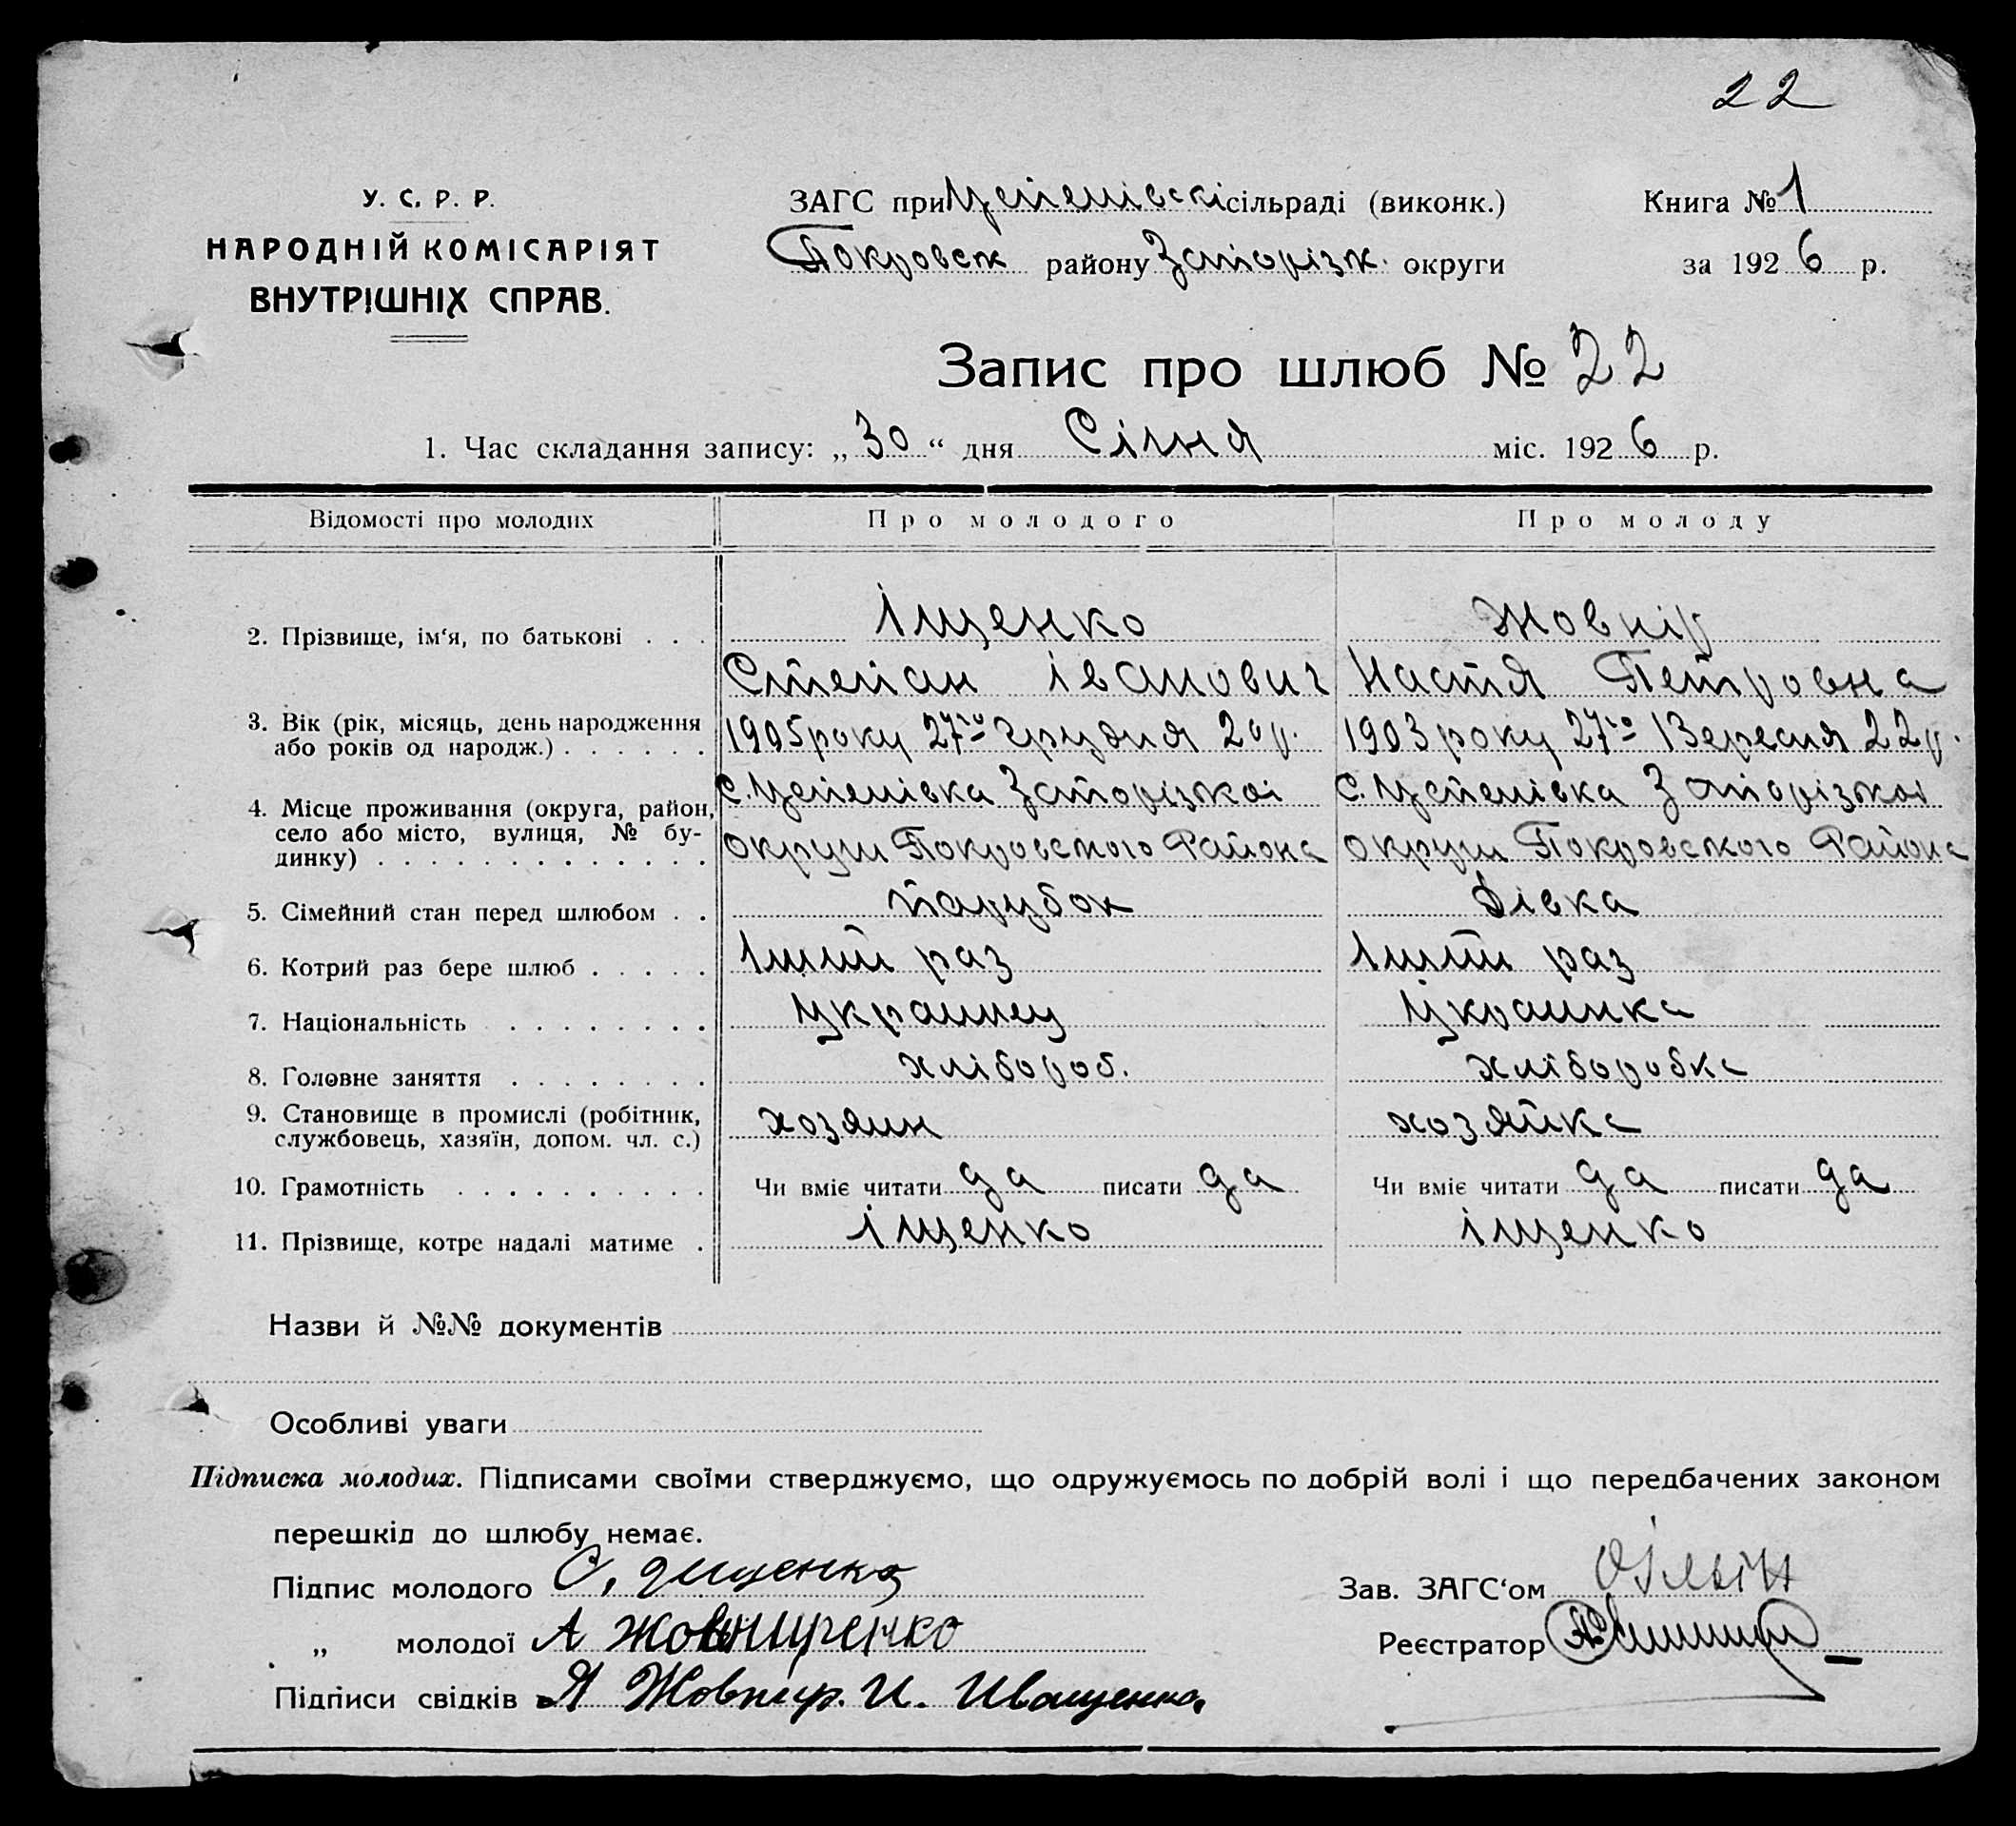 22
У. С. Р. Р.
НАРОДНІЙ КОМІСАРІЯТ
ВНУТРІШНІХ СПРАВ.
ЗАГС при Успенівскі сільраді (виконк.)
Книга № 1
Покровск району Запорізк. округи
за 1926 р.
Запис про шлюб № 22
1. Час складання запису: „30“ дня Січня міс. 1926 р.
Відомості про молодих
Про молодого
Про молоду
2. Прізвище, ім‘я, по батькові . . .
Іщенко
Степан Іванович
Жовнір
Настя Петровна
3. Вік (рік, місяць, день народження
або років од народж.) . . . . . .
1905 року 27го Грудня 20 р.
1903 року 27го Вересня 22 р.
4. Місце проживання (округа, район,
село або місто, вулиця, № бу-
динку) . . . . . . . . . . . . .
с. Успенівка Запорізкої
округи Покровського Района
с. Успенівка Запорізкої
округи Покровского Района
5. Сімейний стан перед шлюбом . .
Парубок
Дівка
6. Котрий раз бере шлюб . . . . .
1ший раз
1ший раз
7. Національність . . . . . . . .
Украинец
Украинка
8. Головне заняття . . . . . . . .
хлібороб.
хліборобка
9. Становище в промислі (робітник,
службовець, хазяїн, допом. чл. с.)
хозяин
хозяйка
10. Грамотність . . . . . . . . . .
Чи вміє читати да писати да
Чи вміє читати да писати да
11. Прізвище, котре надалі матиме .
Іщенко
Іщенко
Назви й №№ документів
Особливі уваги
Підписка молодих. Підписами своїми стверджуємо, що одружуємось по добрій волі і що передбачених законом
перешкід до шлюбу немає.
Підпис молодого С. Ищенко
Зав. ЗАГС‘ом
„ молодої А Жовниренко
Реєстратор
Підписи свідків Я Жовнир. И. Иващенко.